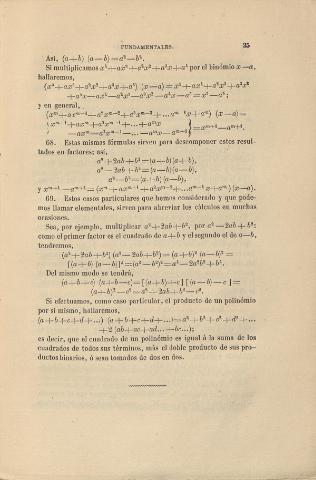 FUNDAMENTALES. 35
Así, (a+b) (a—b)=a²—b².
Si multiplicamos x⁴+ax³+a²x²+a³x+a⁴ por el binómio x—a,
hallaremos,
(x⁴+ax³+a²x²+a³x+a⁴) (x—a)=x⁵+ax⁴+a²x³+a³x²
+a⁴x—ax⁴—a²x³—a³x²—a⁴x—a⁵=x⁵—a⁵;
y en general,
68. Estas mismas fórmulas sirven para descomponer estos resul-
tados en factores; así,
a²+2ab+b²=(a+b)(a+b),
a²—2ab+b²=(a—b)(a—b),
a²—b²=(a+b)(a—b),
69. Estos casos particulares que hemos considerado y que pode-
mos llamar elementales, sirven para abreviar los cálculos en muchas
ocasiones.
Sea, por ejemplo, multiplicar a²+2ab+b², por a²—2ab+b²:
como el primer factor es el cuadrado de a+b y el segundo el de a—b,
tendremos,
(a²+2ab+b²) (a²—2ab+b²)=(a+b)² (a—b)²=
[(a+b) (a—b)]²=(a²—b²)²=a⁴—2a²b²+b⁴.
Del mismo modo se tendrá,
(a+b+c) (a+b—c)=[(a+b)+c] [(a+b)—c]=
(a+b)²—c²=a²+2ab+b²—c².
Si efectuamos, como caso particular, el producto de un polinómio
por si mismo, hallaremos,
(a+b+c+d+...) (a+b+c+d+...)=a²+b²+c²+d²+...
+2 (ab+ac+ad...+bc...);
es decir, que el cuadrado de un polinómio es igual á la suma de los
cuadrados de todos sus términos, más el doble producto de sus pro-
ductos binarios, ó sean tomados de dos en dos.